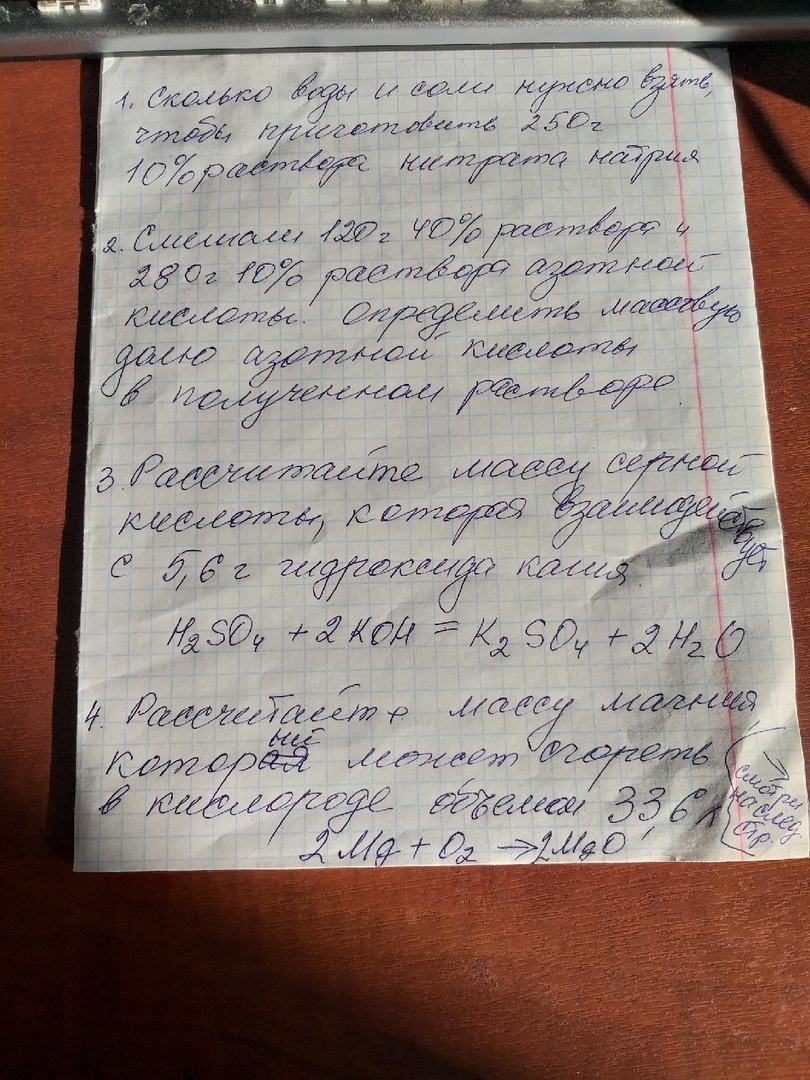 1. Сколько воды и соли нужно взять,
чтобы приготовить 250 г
10% раствора нитрата натрия
2. Смешали 120 г 40% раствора и
280 г 10% раствора азотной
кислоты. Определить массовую
долю азотной кислоты
в полученном растворе.
3. Рассчитайте массу серной
кислоты, которая взаимодействует
с 5,6 г гидроксида калия.
H₂SO₄ + 2KOH = K₂SO₄ + 2H₂O
4. Рассчитайте массу магния
который может сгореть
в кислороде объемом 33,6 л
2Mg + O₂ → 2MgO
→
смотри
на след.
стр.